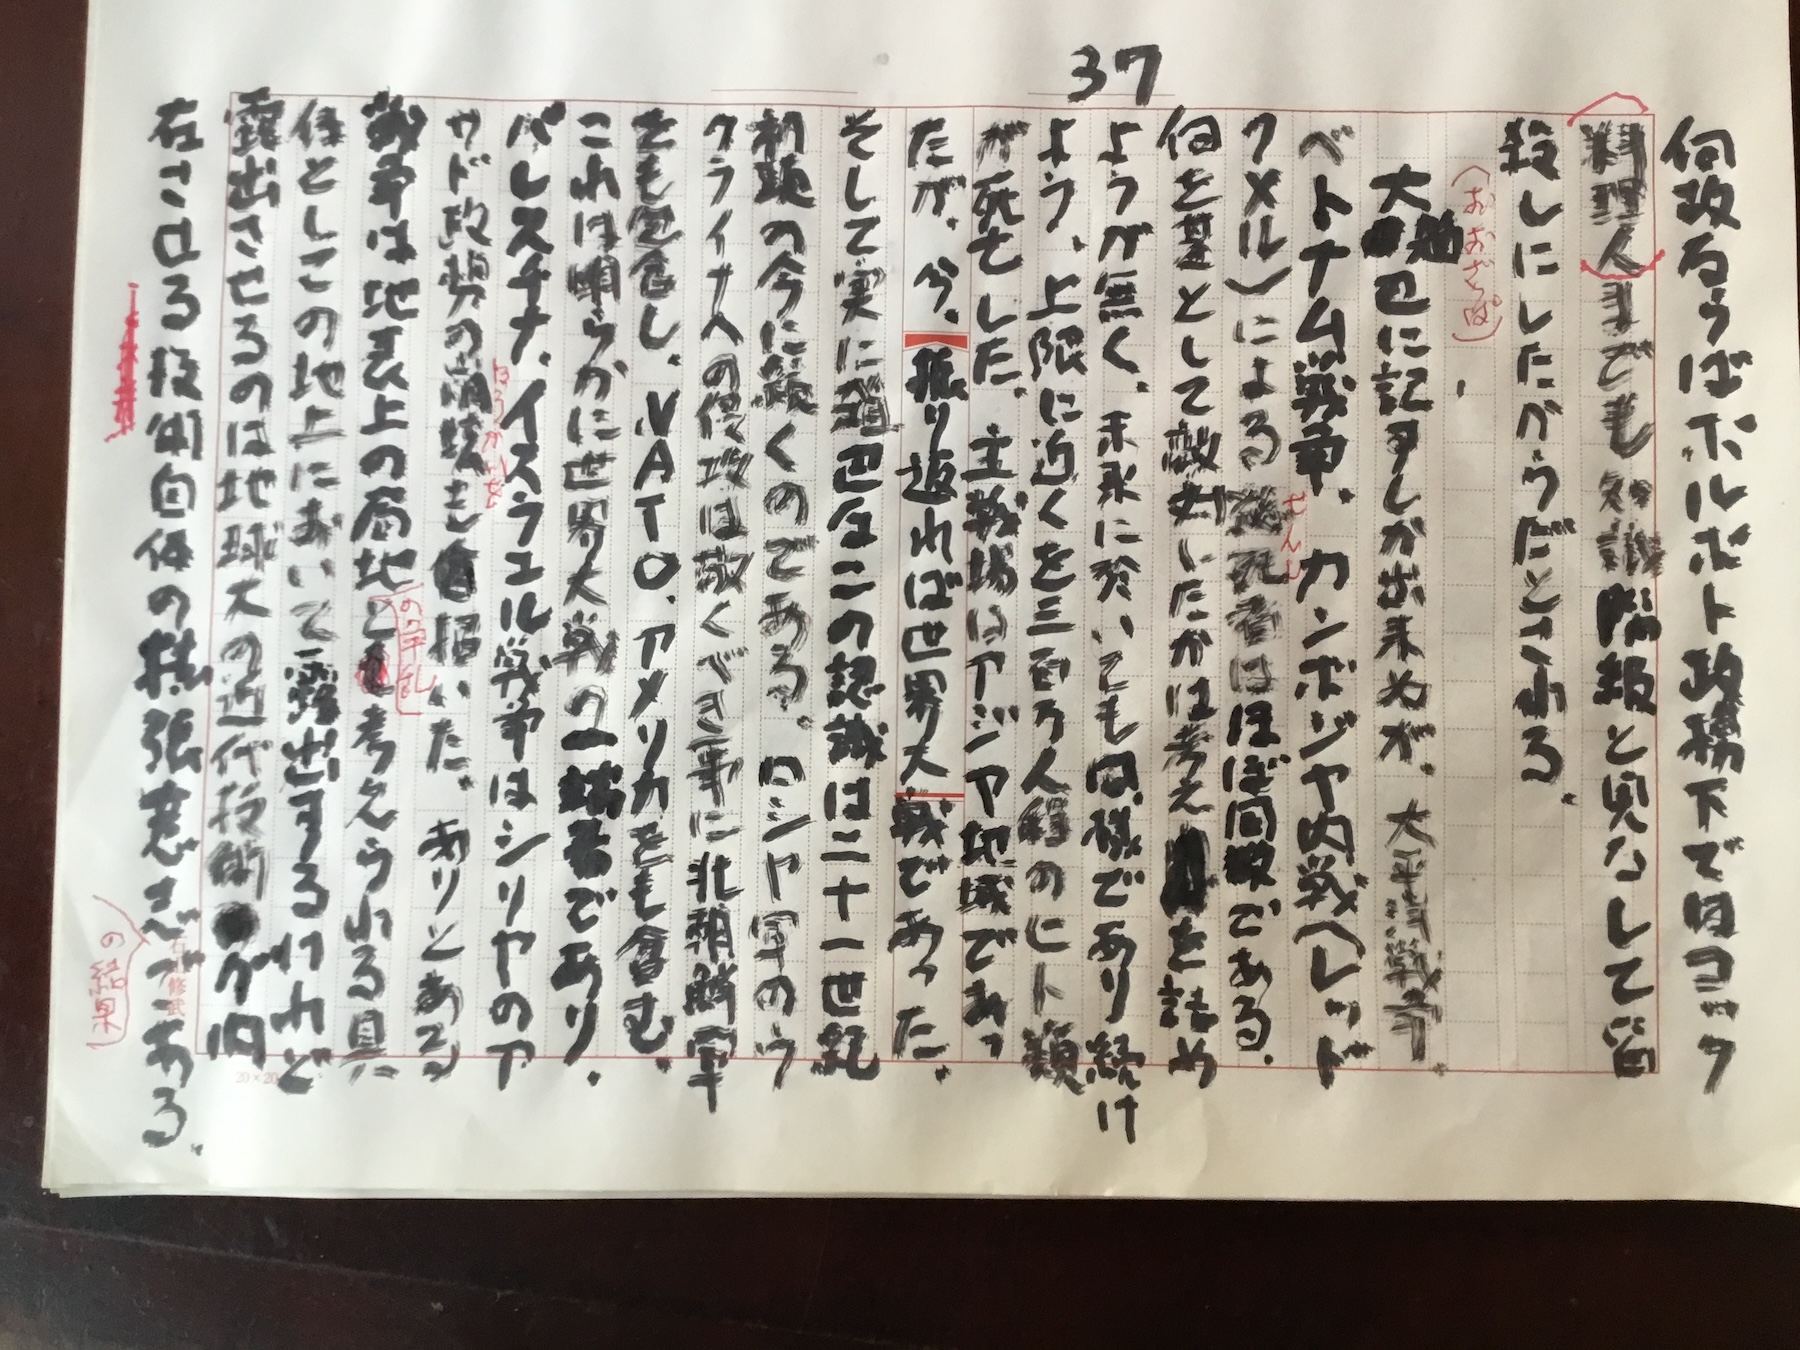 37
何故ならばポルポト政権下ではコック
(料理人)までも知識階級と見なして皆
殺しにしたからだとされる。
(おおざっぱ)
大雑把に記すしか出来ぬが、大平洋戦争
ベトナム戦争、カンボジヤ内戦(レッド
クメル)による戦死者はほぼ同数である。
せんし
何を基として敵対したかは考えを詰め
ようが無く、未来に於いても同様であり続け
よう、上限に近くを三百万人程のヒト類
が死亡した。主戦場はアジヤ地域であっ
たが、今、振り返れば世界大戦であった。
そして実に雑把なこの認識は二十一世紀
初頭の今に続くのである。ロシヤ軍のウ
クライナへの侵攻は敬くべき事に北朝鮮軍
をも包含し、NATO、アメリカをも含む。
これは明らかに世界大戦の一端者であり、
パレスチナ、イスラエル戦争はシリヤのア
サド政勢の崩壊も招いた。ありとある
ほうかいを
戦争は地表上の局地と考えられる具
の争乱
体としこの地上において露出するけれど
露出させるのは地球大の近代技術が旧
在させる技術自体の拡張意志である。
の結果
20×20